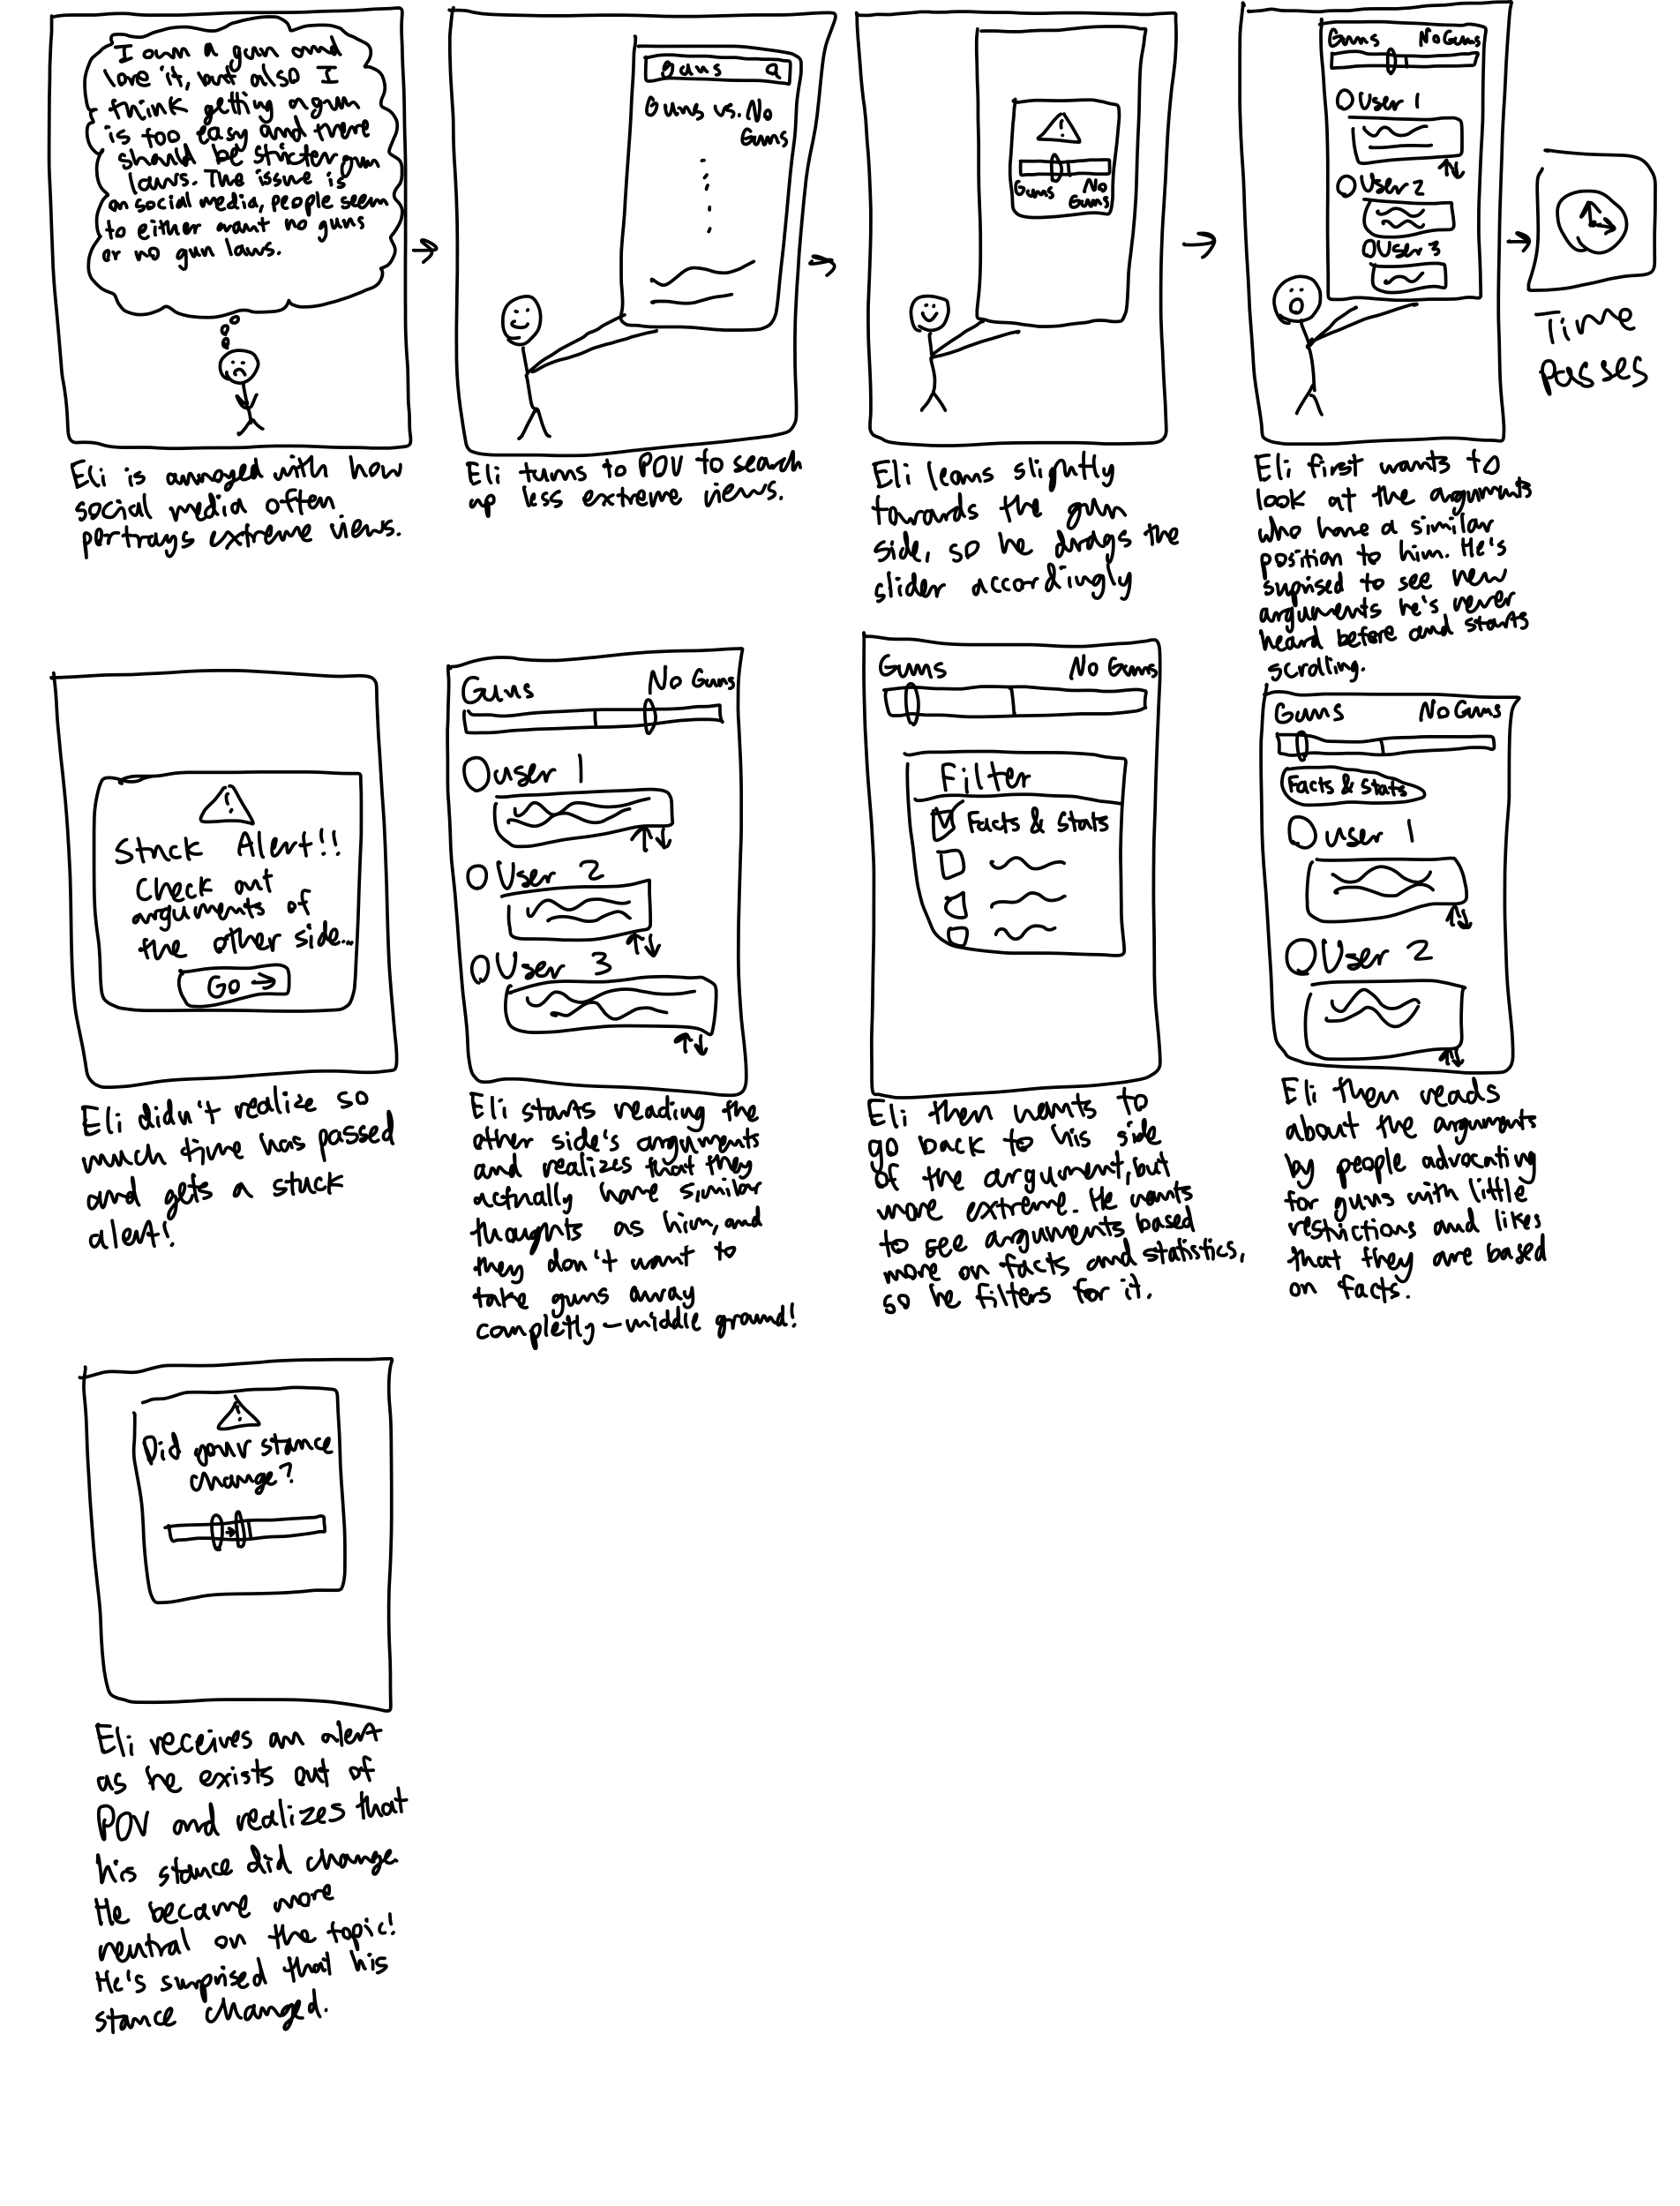 I own a gun and
love it, but also I
think getting a gun
is too easy and there
should be stricter gun
laws. The issue is
on social media, people seem
to either want no guns
or no gun laws.
Eli is annoyed with how
social media often
portrays extreme views.
Guns
Guns vs. No
Guns
Eli turns to POV to search
up less extreme views.
!
Guns
No
Guns
Eli leans slightly
towards the gun
side, so he drags the
slider accordingly
Guns No Guns
User 1
User 2
User 3
Eli first wants to
look at the arguments
who have a similar
position to him. He's
suprised to see new
arguments he's never
heard before and starts
scrolling.
Time
passes
!
Stuck Alert!!
Check out
arguments of
the other side...
Go →
Eli didn't realize so
much time has passed
and gets a stuck
alert!
Guns No Guns
User 1
User 2
User 3
Eli starts reading the
other side's arguments
and realizes that they
actually have similar
thoughts as him, and
they don't want to
take guns away
completly – middle ground!
Guns No Guns
Filter
Facts & Stats
Eli then wants to
go back to his side
of the argument, but
more extreme. He wants
to see arguments based
more on facts and statistics,
so he filters for it.
Guns No Guns
Facts & Stats
User 1
User 2
Eli then reads
about the arguments
by people advocating
for guns with little
restrictions and likes
that they are based
on facts.
!
Did your stance
change?
Eli receives an alert
as he exists out of
POV and realizes that
his stance did change.
He became more
neutral on the topic!
He's surprised that his
stance changed.